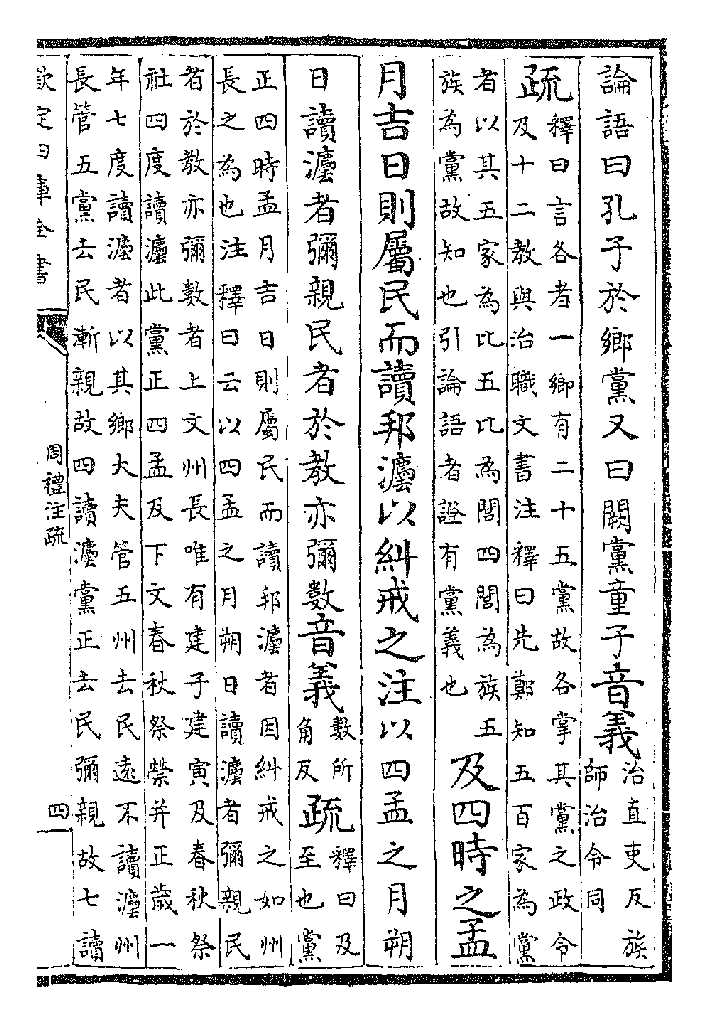 論語曰孔子於鄉黨又曰闕黨童子音義治直吏反族
師治令同
疏釋曰言各者一鄉有二十五黨故各掌其黨之政令
及十二教與治職文書注釋曰先鄭知五百家為黨
者以其五家為比五比為閭四閭為族五
族為黨故知也引論語者證有黨義也
及四時之孟
月吉日則屬民而讀邦灋以糾戒之注以四孟之月朔
日讀灋者彌親民者於教亦彌數音義數所
角反
疏釋曰及
至也黨
正四時孟月吉日則屬民而讀邦灋者因糾戒之如州
長之為也注釋曰云以四孟之月朔日讀灋者彌親民
者於教亦彌數者上文州長唯有建子建寅及春秋祭
社四度讀灋此黨正四孟及下文春秋祭禜并正歲一
年七度讀灋者以其鄉大夫管五州去民遠不讀灋州
長管五黨去民漸親故四讀灋黨正去民彌親故七讀
欽定四庫全書
周禮注疏
四